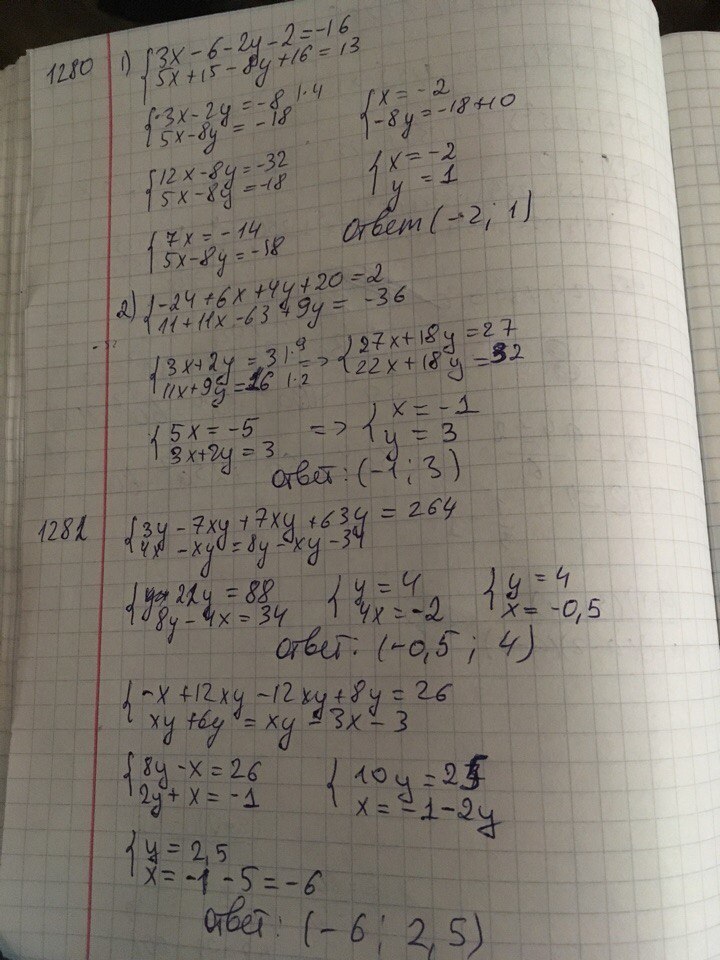 1280 1) {3x - 6 - 2y - 2 = -16
5x + 15 - 8y + 16 = 13
{3x - 2y = -8 |·4
5x - 8y = -18
{x = -2
-8y = -18 + 10
{12x - 8y = -32
5x - 8y = -18
{x = -2
y = 1
{7x = -14
5x - 8y = -18
Ответ (-2; 1)
2) {-24 + 6x + 4y + 20 = 2
11 + 11x - 63 + 9y = -36
{3x + 2y = 3 |·9
11x + 9y = 16 |·2
=> {27x + 18y = 27
22x + 18y = 32
{5x = -5
3x + 2y = 3
=> {x = -1
y = 3
Ответ: (-1; 3)
1281 {3y - 7xy + 7xy + 63y = 264
4x - xy = 8y - xy - 34
22y = 88
8y - 4x = 34
{y = 4
4x = -2
{y = 4
x = -0,5
Ответ: (-0,5; 4)
{-x + 12xy - 12xy + 8y = 26
xy + 6y = xy - 3x - 3
{8y - x = 26
2y + x = -1
{10y = 25
x = -1 - 2y
{y = 2,5
x = -1 - 5 = -6
Ответ: (-6; 2,5)